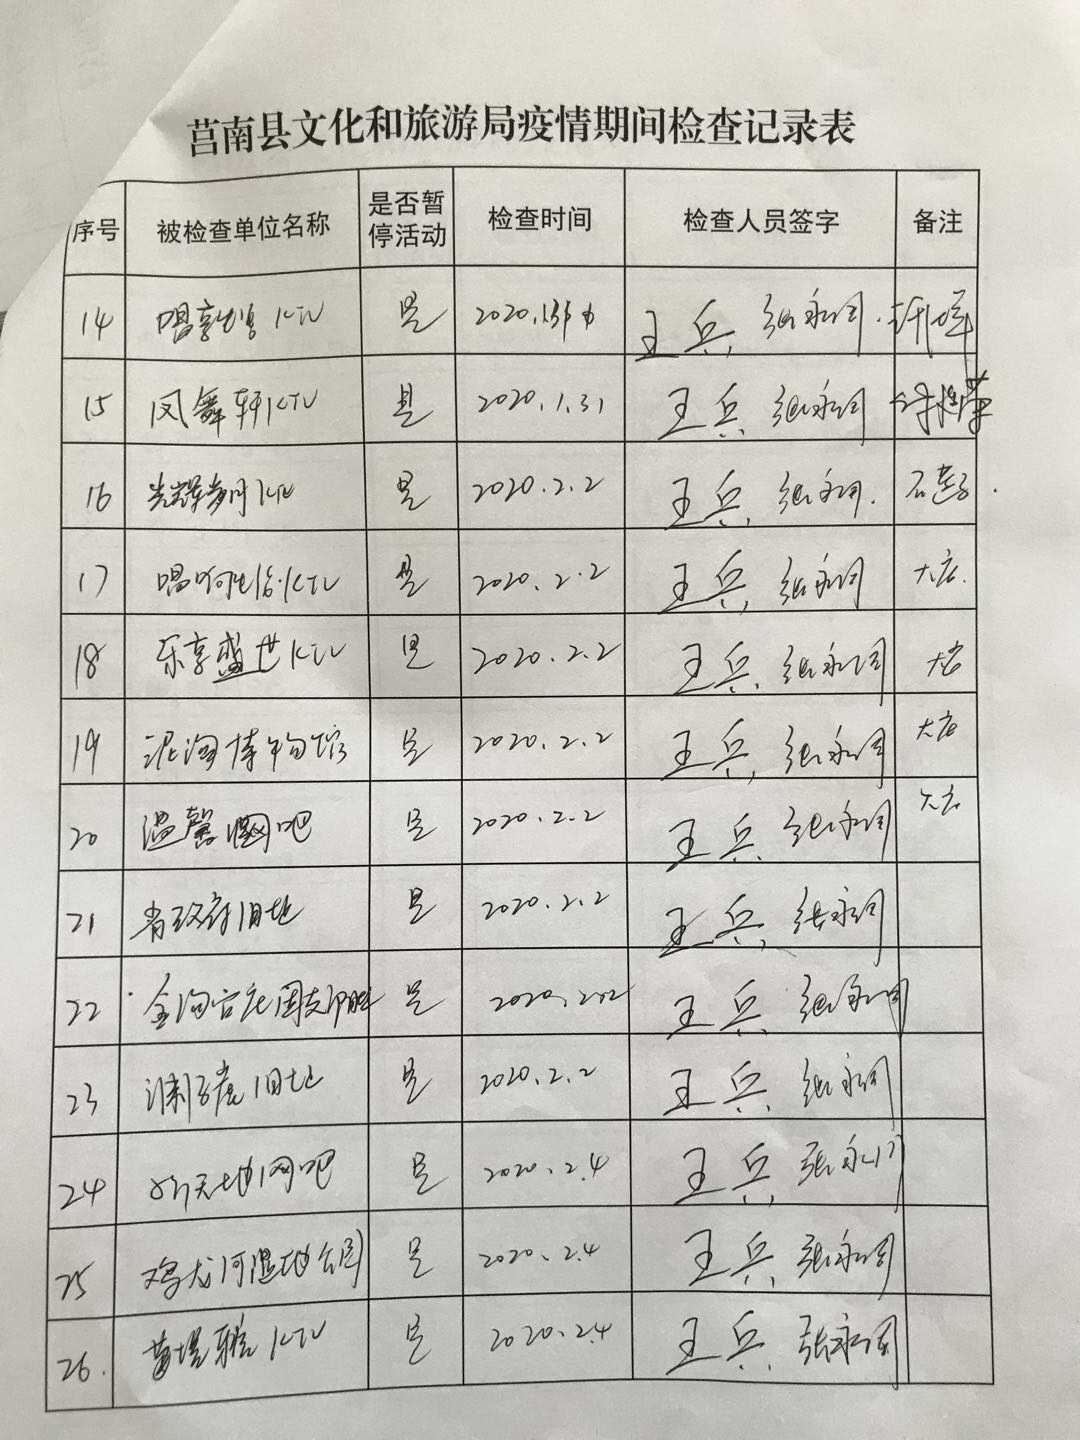 莒南县文化和旅游局疫情期间检查记录表
序号 被检查单位名称 是否暂停活动 检查时间 检查人员签字 备注
14 唱享 KTV 是 2020.1.31 王兵 张永同
15 凤舞轩KTV 是 2020.1.31 王兵 张永同
16 光辉岁月KTV 是 2020.2.2 王兵 张永同 石莲子
17 唱响生活KTV 是 2020.2.2 王兵 张永同 大店
18 乐享盛世KTV 是 2020.2.2 王兵 张永同 大店
19 泥淘博物馆 是 2020.2.2 王兵 张永同 大店
20 温馨网吧 是 2020.2.2 王兵 张永同 大店
21 省政府旧址 是 2020.2.2 王兵 张永同
22 金沟官庄 是 2020.2.2 王兵 张永同
23 渊子崖旧址 是 2020.2.2 王兵 张永同
24 新天地网吧 是 2020.2.4 王兵 张永同
25 鸡龙河湿地公园 是 2020.2.4 王兵 张永同
26. KTV 是 2020.2.4 王兵 张永同